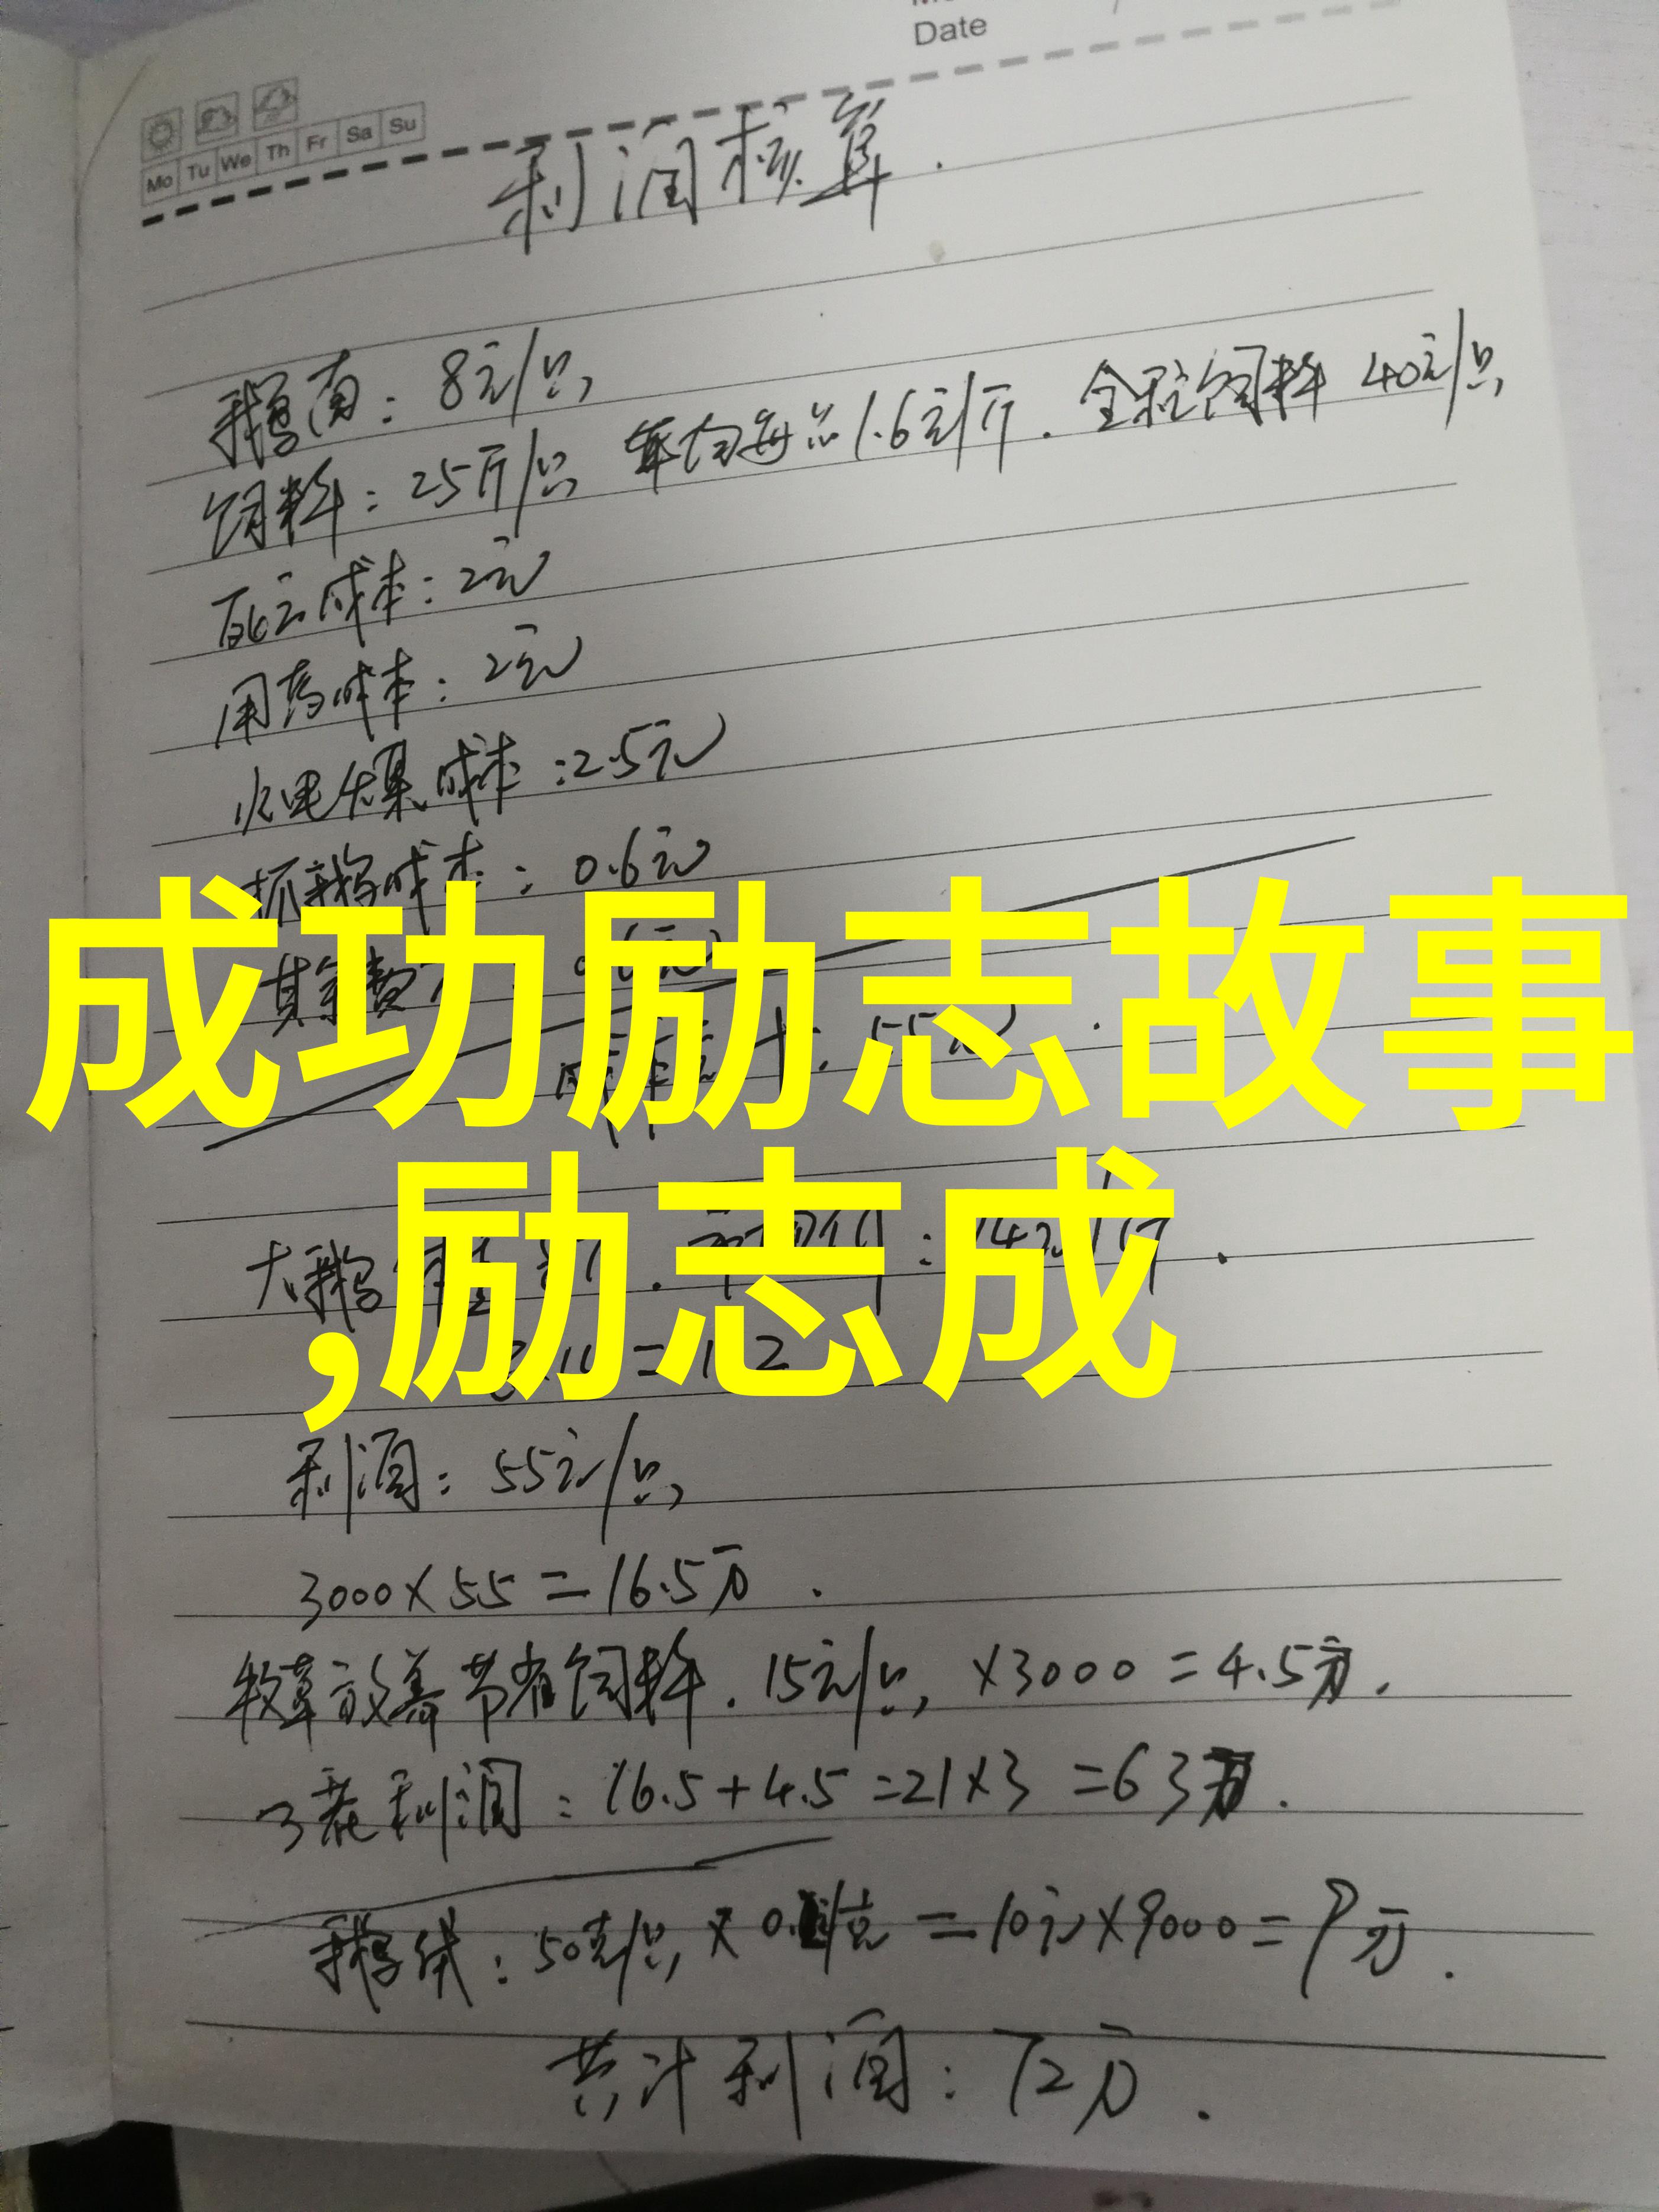 Date
Mo Tu We Th Fr Sa Su
利润核算.
鹅苗：8元/只
饲料：25斤/只 平均每斤1.6元/斤. 全程饲料 40元/只
死亡成本：2元
用药成本：2元
水电煤成本：2.5元
抓鹅成本：0.6元
其余费
成功励志故事
,励志成
大鹅
利润：55元/只
3000×55=16.5万.
牧草放养节省饲料. 15元/只 ×3000=4.5万.
3茬利润：16.5+4.5=21×3=63万.
鹅绒：50克/只 × =10元×9000=9万.
共计利润：72万.